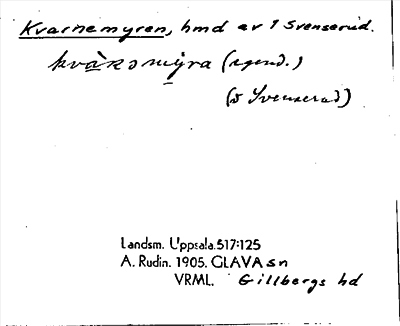 Kvarnemyren, hmd av 1 Svenserud.
kvàrnemyra (egend.)
(5 Svenserud)
Landsm. Uppsala.517:125
A. Rudin. 1905. GLAVA sn
VRML. Gillbergs hd